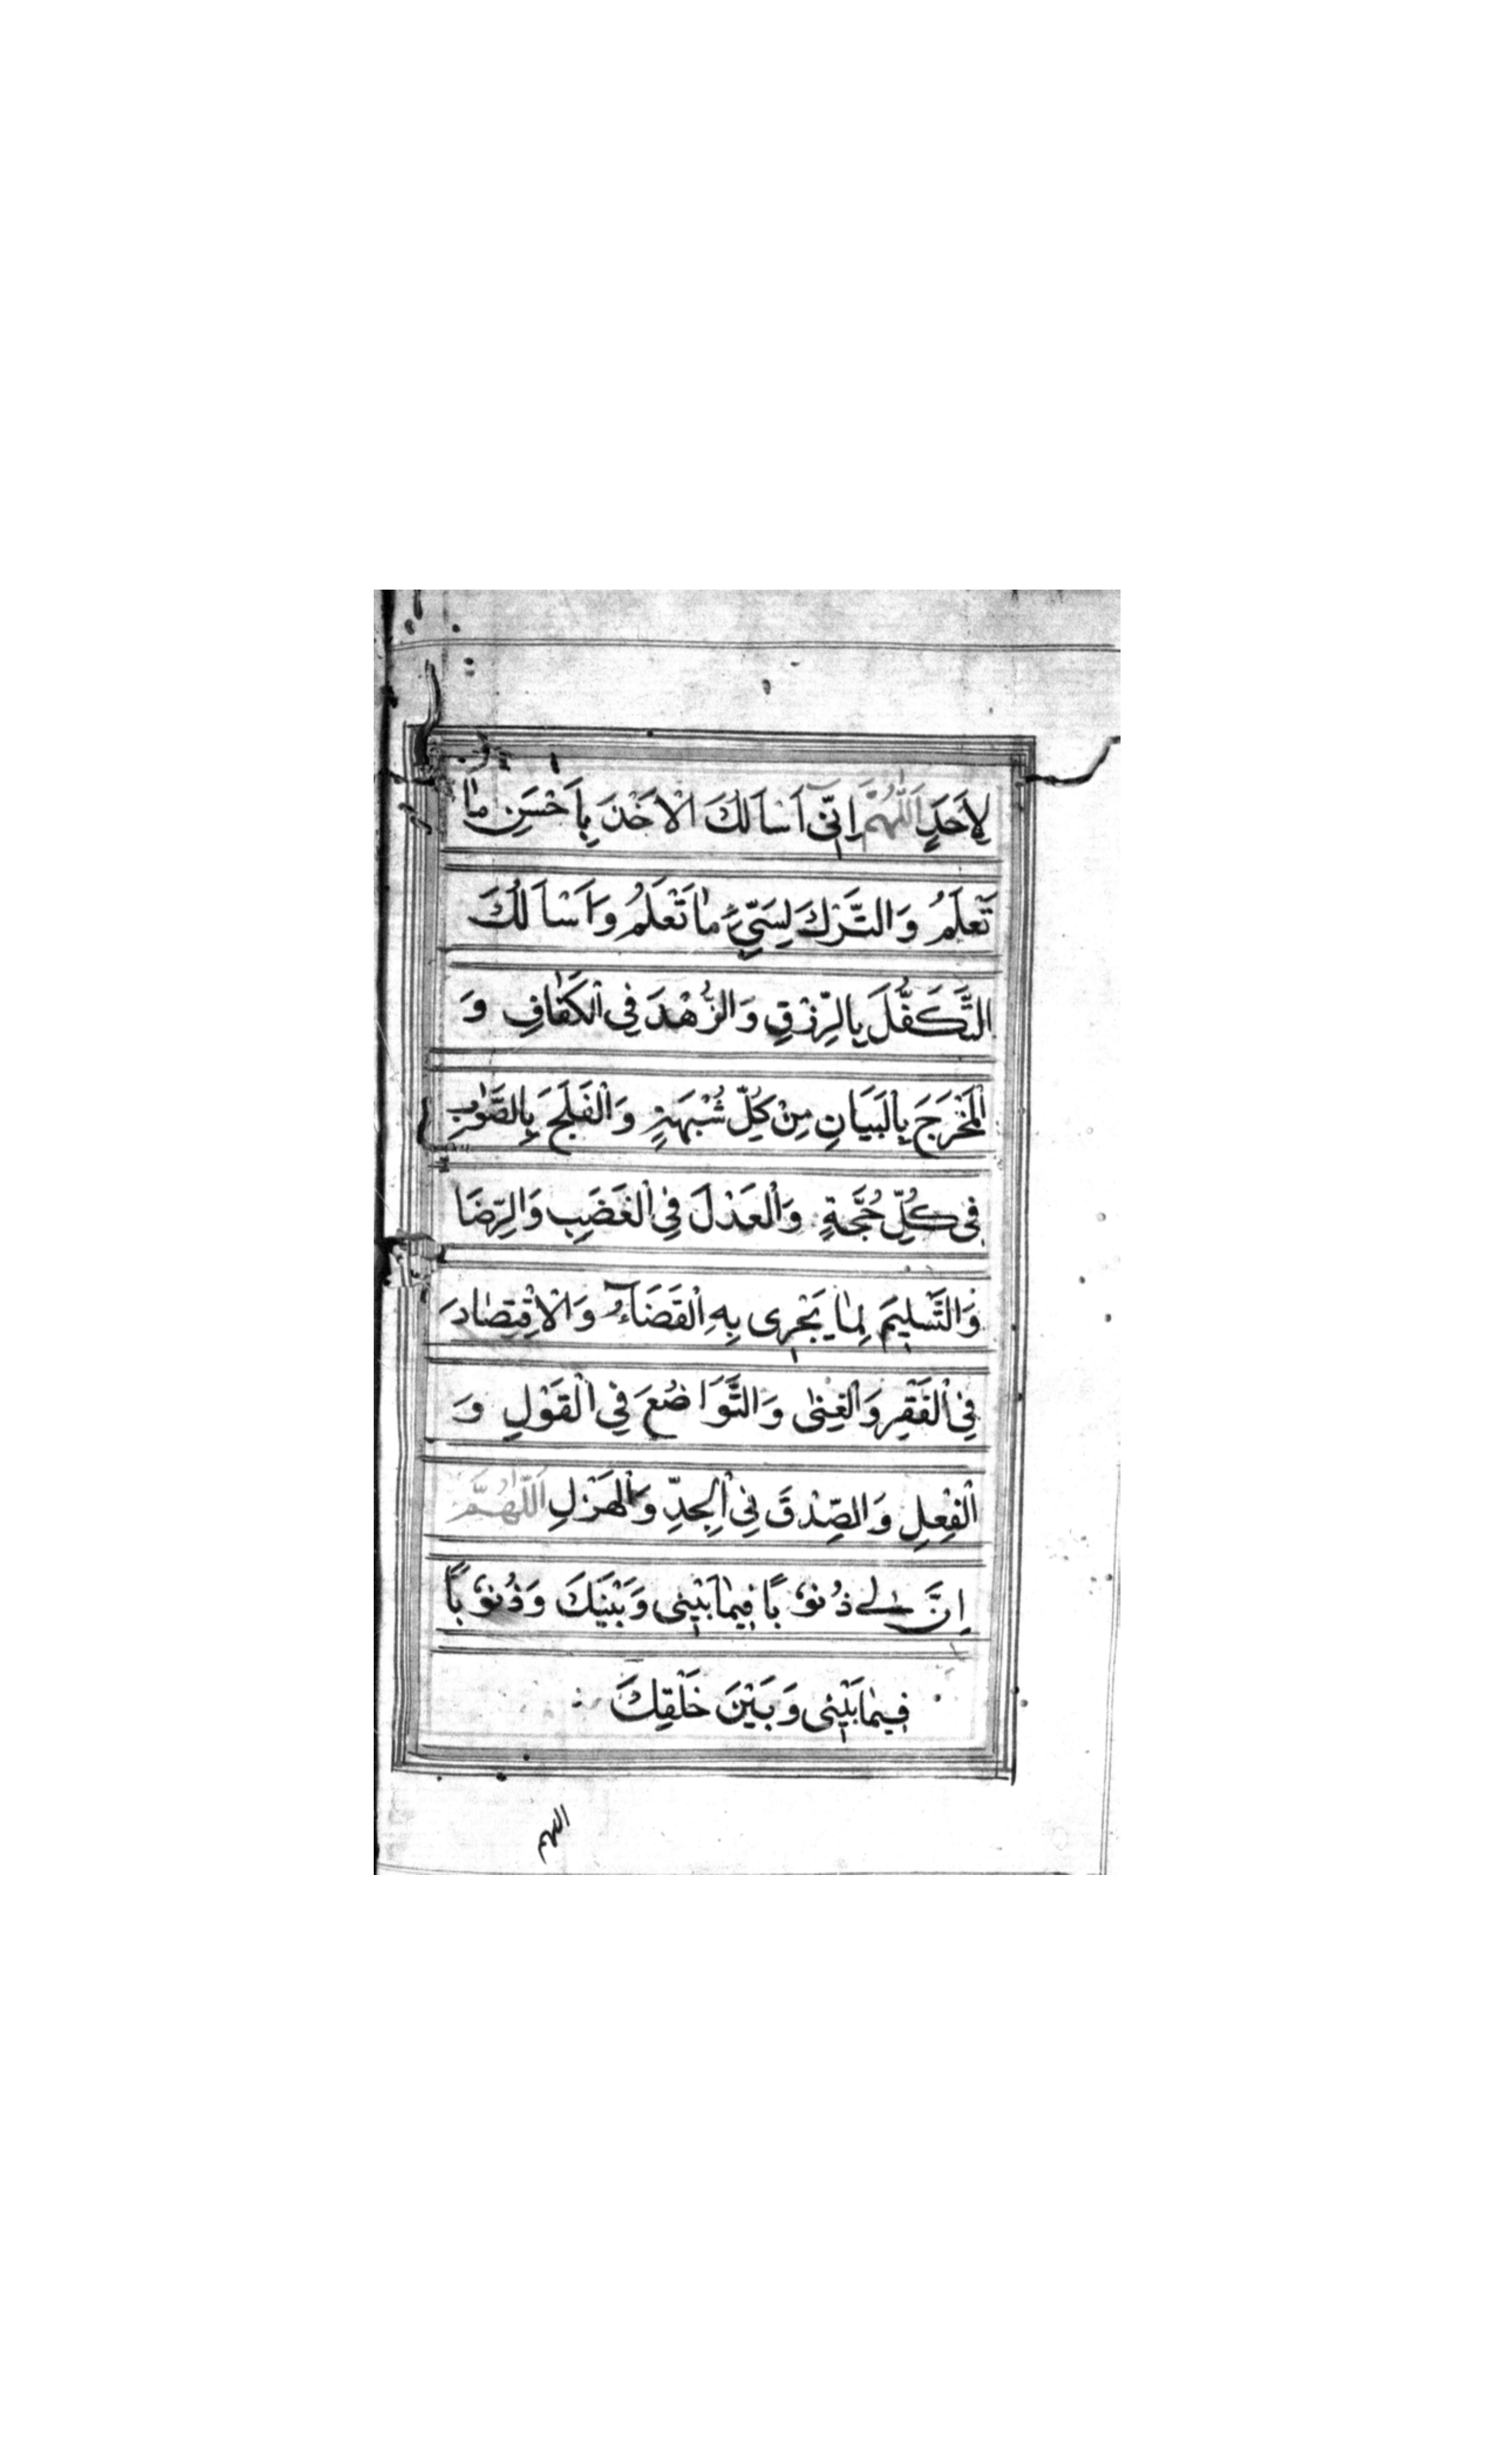 لِاَحَدٍ اَللّٰهُمَّ اِنّٓی اَسْاَلُكَ الْاَخْذَ بِاَحْسَنِ مٰا
تَعْلَمُ وَالتَّرْكَ لِسَیِّئِ مٰا تَعْلَمُ وَاَسْاَلُكَ
التَّكَفُّلَ بِالرِّزْقِ وَالزُّهْدَ فِی الْكَفٰافِ وَ
الْمَخْرَجَ بِالْبَیَانِ مِنْ كُلِّ شُبْهَةٍ وَالْفَلَجَ بِالصَّوٰابِ
فِی كُلِّ حُجَّةٍ وَالْعَدْلَ فِی الْغَضَبِ وَالرِّضَا
وَالتَّسْلِیمَ لِمٰا یَجْرِی بِهِ الْقَضَآءُ وَالْاِقْتِصٰادَ
فِی الْفَقْرِ وَالْغِنٰی وَالتَّوَاضُعَ فِی الْقَوْلِ وَ
الْفِعْلِ وَالصِّدْقَ فِی الْجِدِّ وَالْهَزْلِ اَللّٰهُمَّ
اِنَّ لِی ذُنُوبًا فِیمٰا بَیْنِی وَبَیْنَكَ وَذُنُوبًا
فِیمٰا بَیْنِی وَبَیْنَ خَلْقِكَ
اللهم